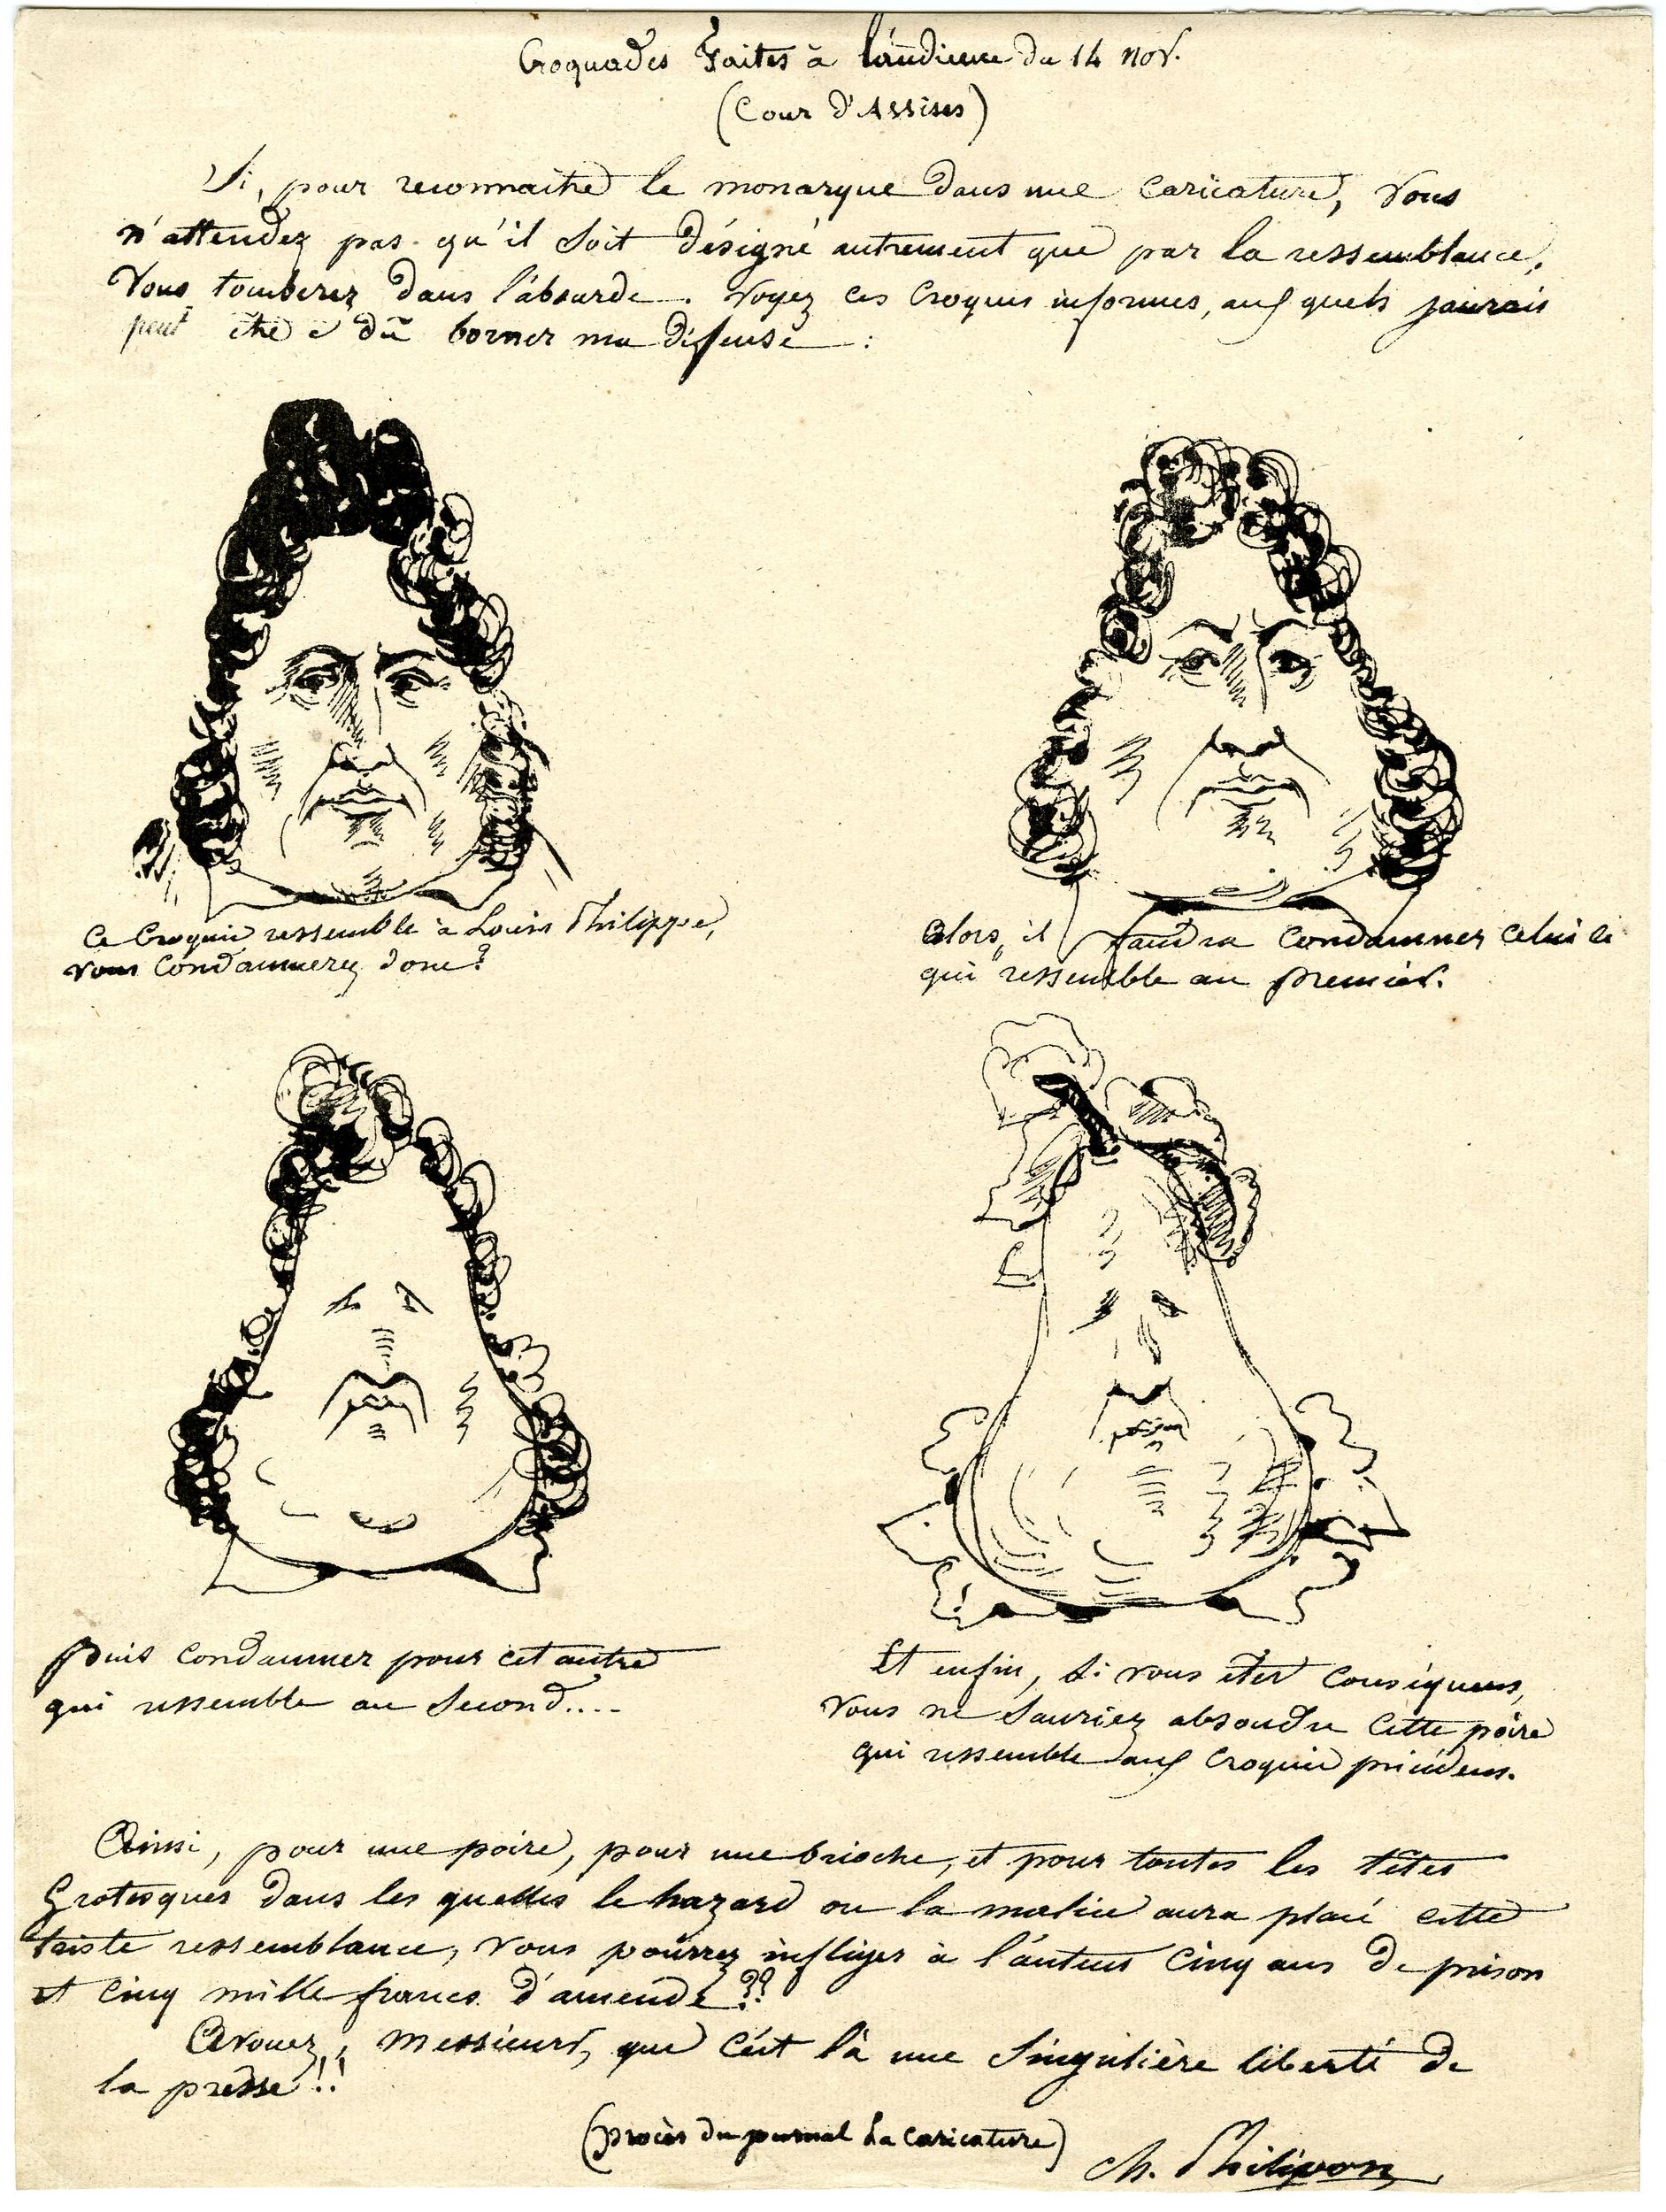 Croquades Faites à l'audience du 14 Nov.
(Cour d'Assises)
Si, pour reconnaitre le monarque dans une caricature, vous
n'attendez pas qu'il soit désigné autrement que par la ressemblance,
vous tomberez dans l'absurde. Voyez ces croquis informes, aux quels j'aurais
peut être dû borner ma défense :
Ce croquis ressemble à Louis Philippe,
vous condamnerez donc?
Alors, il faudra condamner celui ci
qui ressemble au premier.
Puis condamner pour cet autre
qui ressemble au second....
Et enfin, si vous êtes conséquens,
vous ne sauriez absoudre cette poire
qui ressemble aux croquis précédens.
Ainsi, pour une poire, pour une brioche, et pour toutes les têtes
grotesques dans les quelles le hazard ou la malice aura placé cette
triste ressemblance, vous pourrez infliger à l'auteur cinq ans de prison
et cinq mille francs d'amende??
Avouez, Messieurs, que c'est là une singulière liberté de
la presse!!
(procès du journal La Caricature)
Ch. Philipon